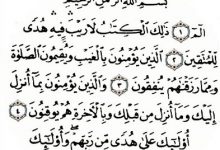 بِسْمِ اللَّهِ الرَّحْمَٰنِ الرَّحِيمِ
الٓمٓ ١ ذَٰلِكَ الْكِتَٰبُ لَا رَيْبَ فِيهِ هُدًى
لِّلْمُتَّقِينَ ٢ الَّذِينَ يُؤْمِنُونَ بِالْغَيْبِ وَيُقِيمُونَ الصَّلَوٰةَ
وَمِمَّا رَزَقْنَٰهُمْ يُنفِقُونَ ٣ وَالَّذِينَ يُؤْمِنُونَ بِمَا أُنزِلَ
إِلَيْكَ وَمَا أُنزِلَ مِن قَبْلِكَ وَبِالْآخِرَةِ هُمْ يُوقِنُونَ ٤
أُولَٰئِكَ عَلَىٰ هُدًى مِّن رَّبِّهِمْ وَأُولَٰئِكَ